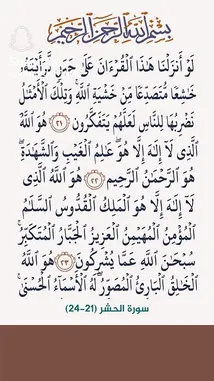 بِسْمِ ٱللَّهِ ٱلرَّحْمَٰنِ ٱلرَّحِيمِ
لَوْ أَنزَلْنَا هَٰذَا ٱلْقُرْءَانَ عَلَىٰ جَبَلٍ لَّرَأَيْتَهُۥ
خَٰشِعًا مُّتَصَدِّعًا مِّنْ خَشْيَةِ ٱللَّهِ ۚ وَتِلْكَ ٱلْأَمْثَٰلُ
نَضْرِبُهَا لِلنَّاسِ لَعَلَّهُمْ يَتَفَكَّرُونَ ٢١ هُوَ ٱللَّهُ
ٱلَّذِى لَآ إِلَٰهَ إِلَّا هُوَ ۖ عَٰلِمُ ٱلْغَيْبِ وَٱلشَّهَٰدَةِ ۖ
هُوَ ٱلرَّحْمَٰنُ ٱلرَّحِيمُ ٢٢ هُوَ ٱللَّهُ ٱلَّذِى
لَآ إِلَٰهَ إِلَّا هُوَ ٱلْمَلِكُ ٱلْقُدُّوسُ ٱلسَّلَٰمُ
ٱلْمُؤْمِنُ ٱلْمُهَيْمِنُ ٱلْعَزِيزُ ٱلْجَبَّارُ ٱلْمُتَكَبِّرُ ۚ
سُبْحَٰنَ ٱللَّهِ عَمَّا يُشْرِكُونَ ٢٣ هُوَ ٱللَّهُ
ٱلْخَٰلِقُ ٱلْبَارِئُ ٱلْمُصَوِّرُ ۖ لَهُ ٱلْأَسْمَآءُ ٱلْحُسْنَىٰ ۚ
سورة الحشر (21-24)